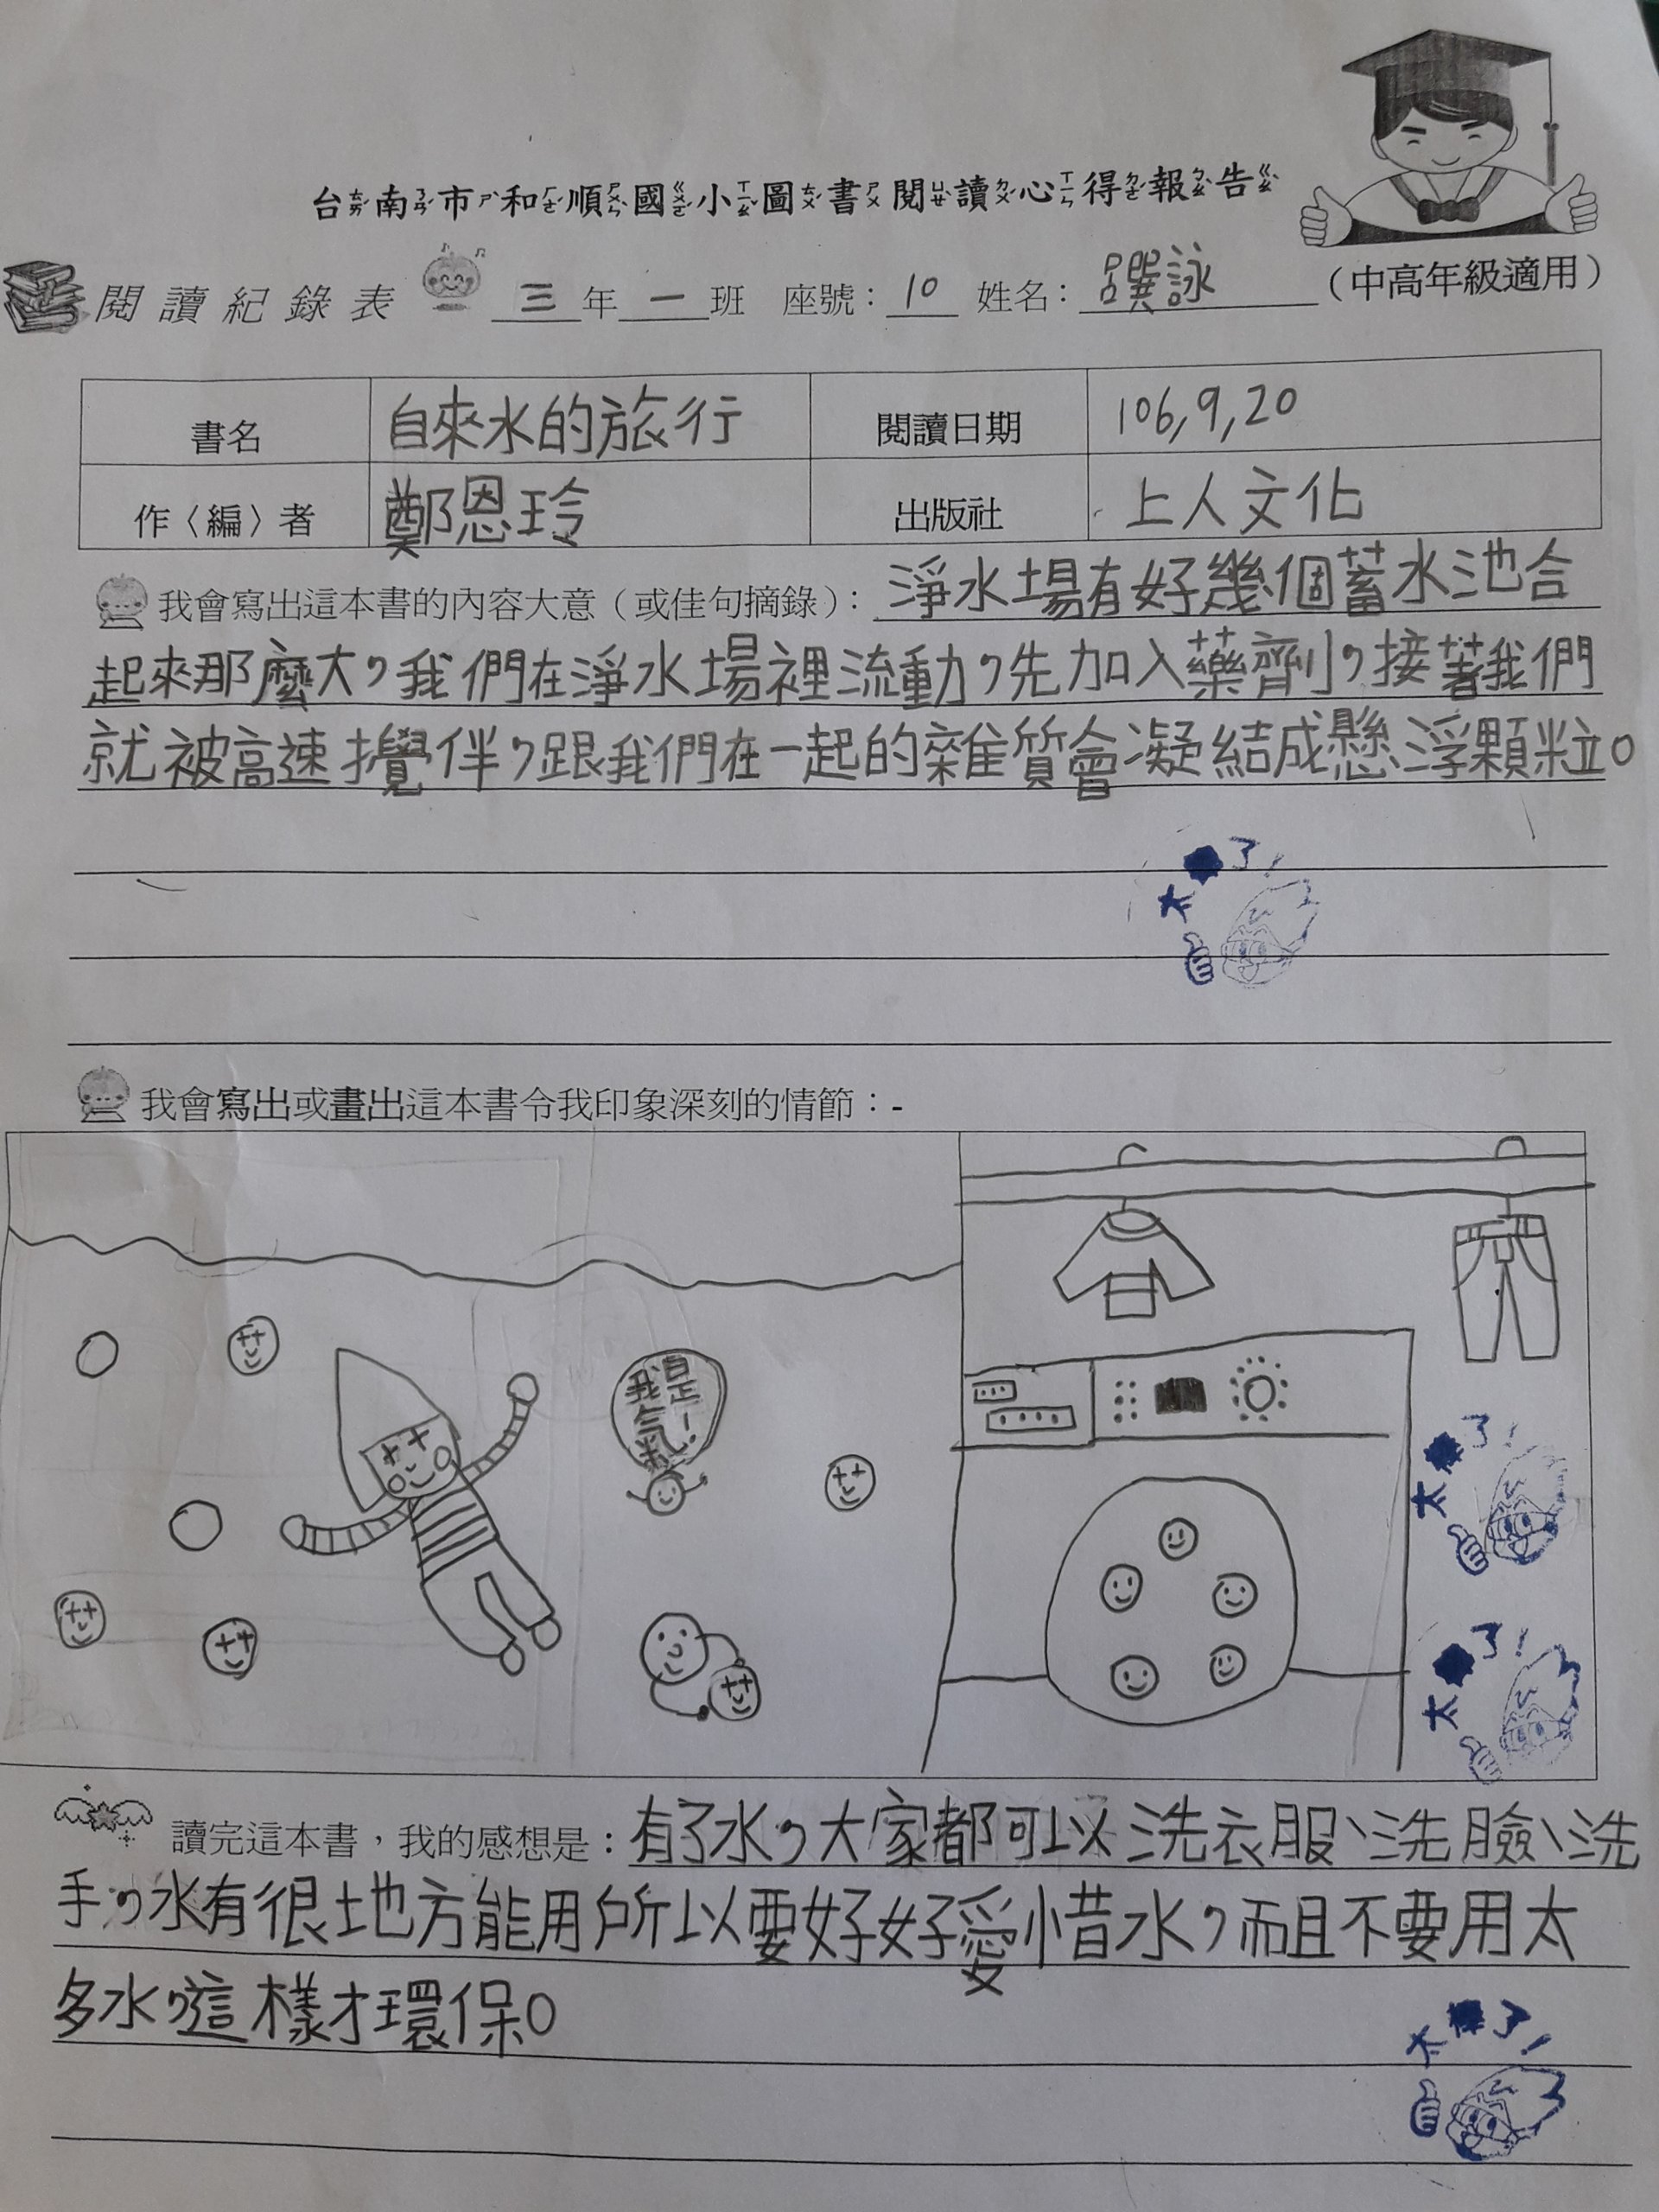 台南市和順國小圖書閱讀心得報告
閱讀紀錄表 三年一班 座號：10 姓名：詠 （中高年級適用）
書名 自來水的旅行 閱讀日期 106,9,20
作〈編〉者 鄭恩玲 出版社 上人文化
我會寫出這本書的內容大意（或佳句摘錄）：淨水場有好幾個蓄水池合
起來那麼大，我們在淨水場裡流動，先加入藥劑，接著我們
就被高速攪伴，跟我們在一起的雜質會凝結成懸浮顆粒。
太棒了！
我會寫出或畫出這本書令我印象深刻的情節：-
我是氣
太棒了！
太棒了！
讀完這本書，我的感想是：有了水，大家都可以洗衣服、洗臉、洗
手，水有很地方能用所以要好好愛惜水，而且不要用太
多水，這樣才環保。
太棒了！